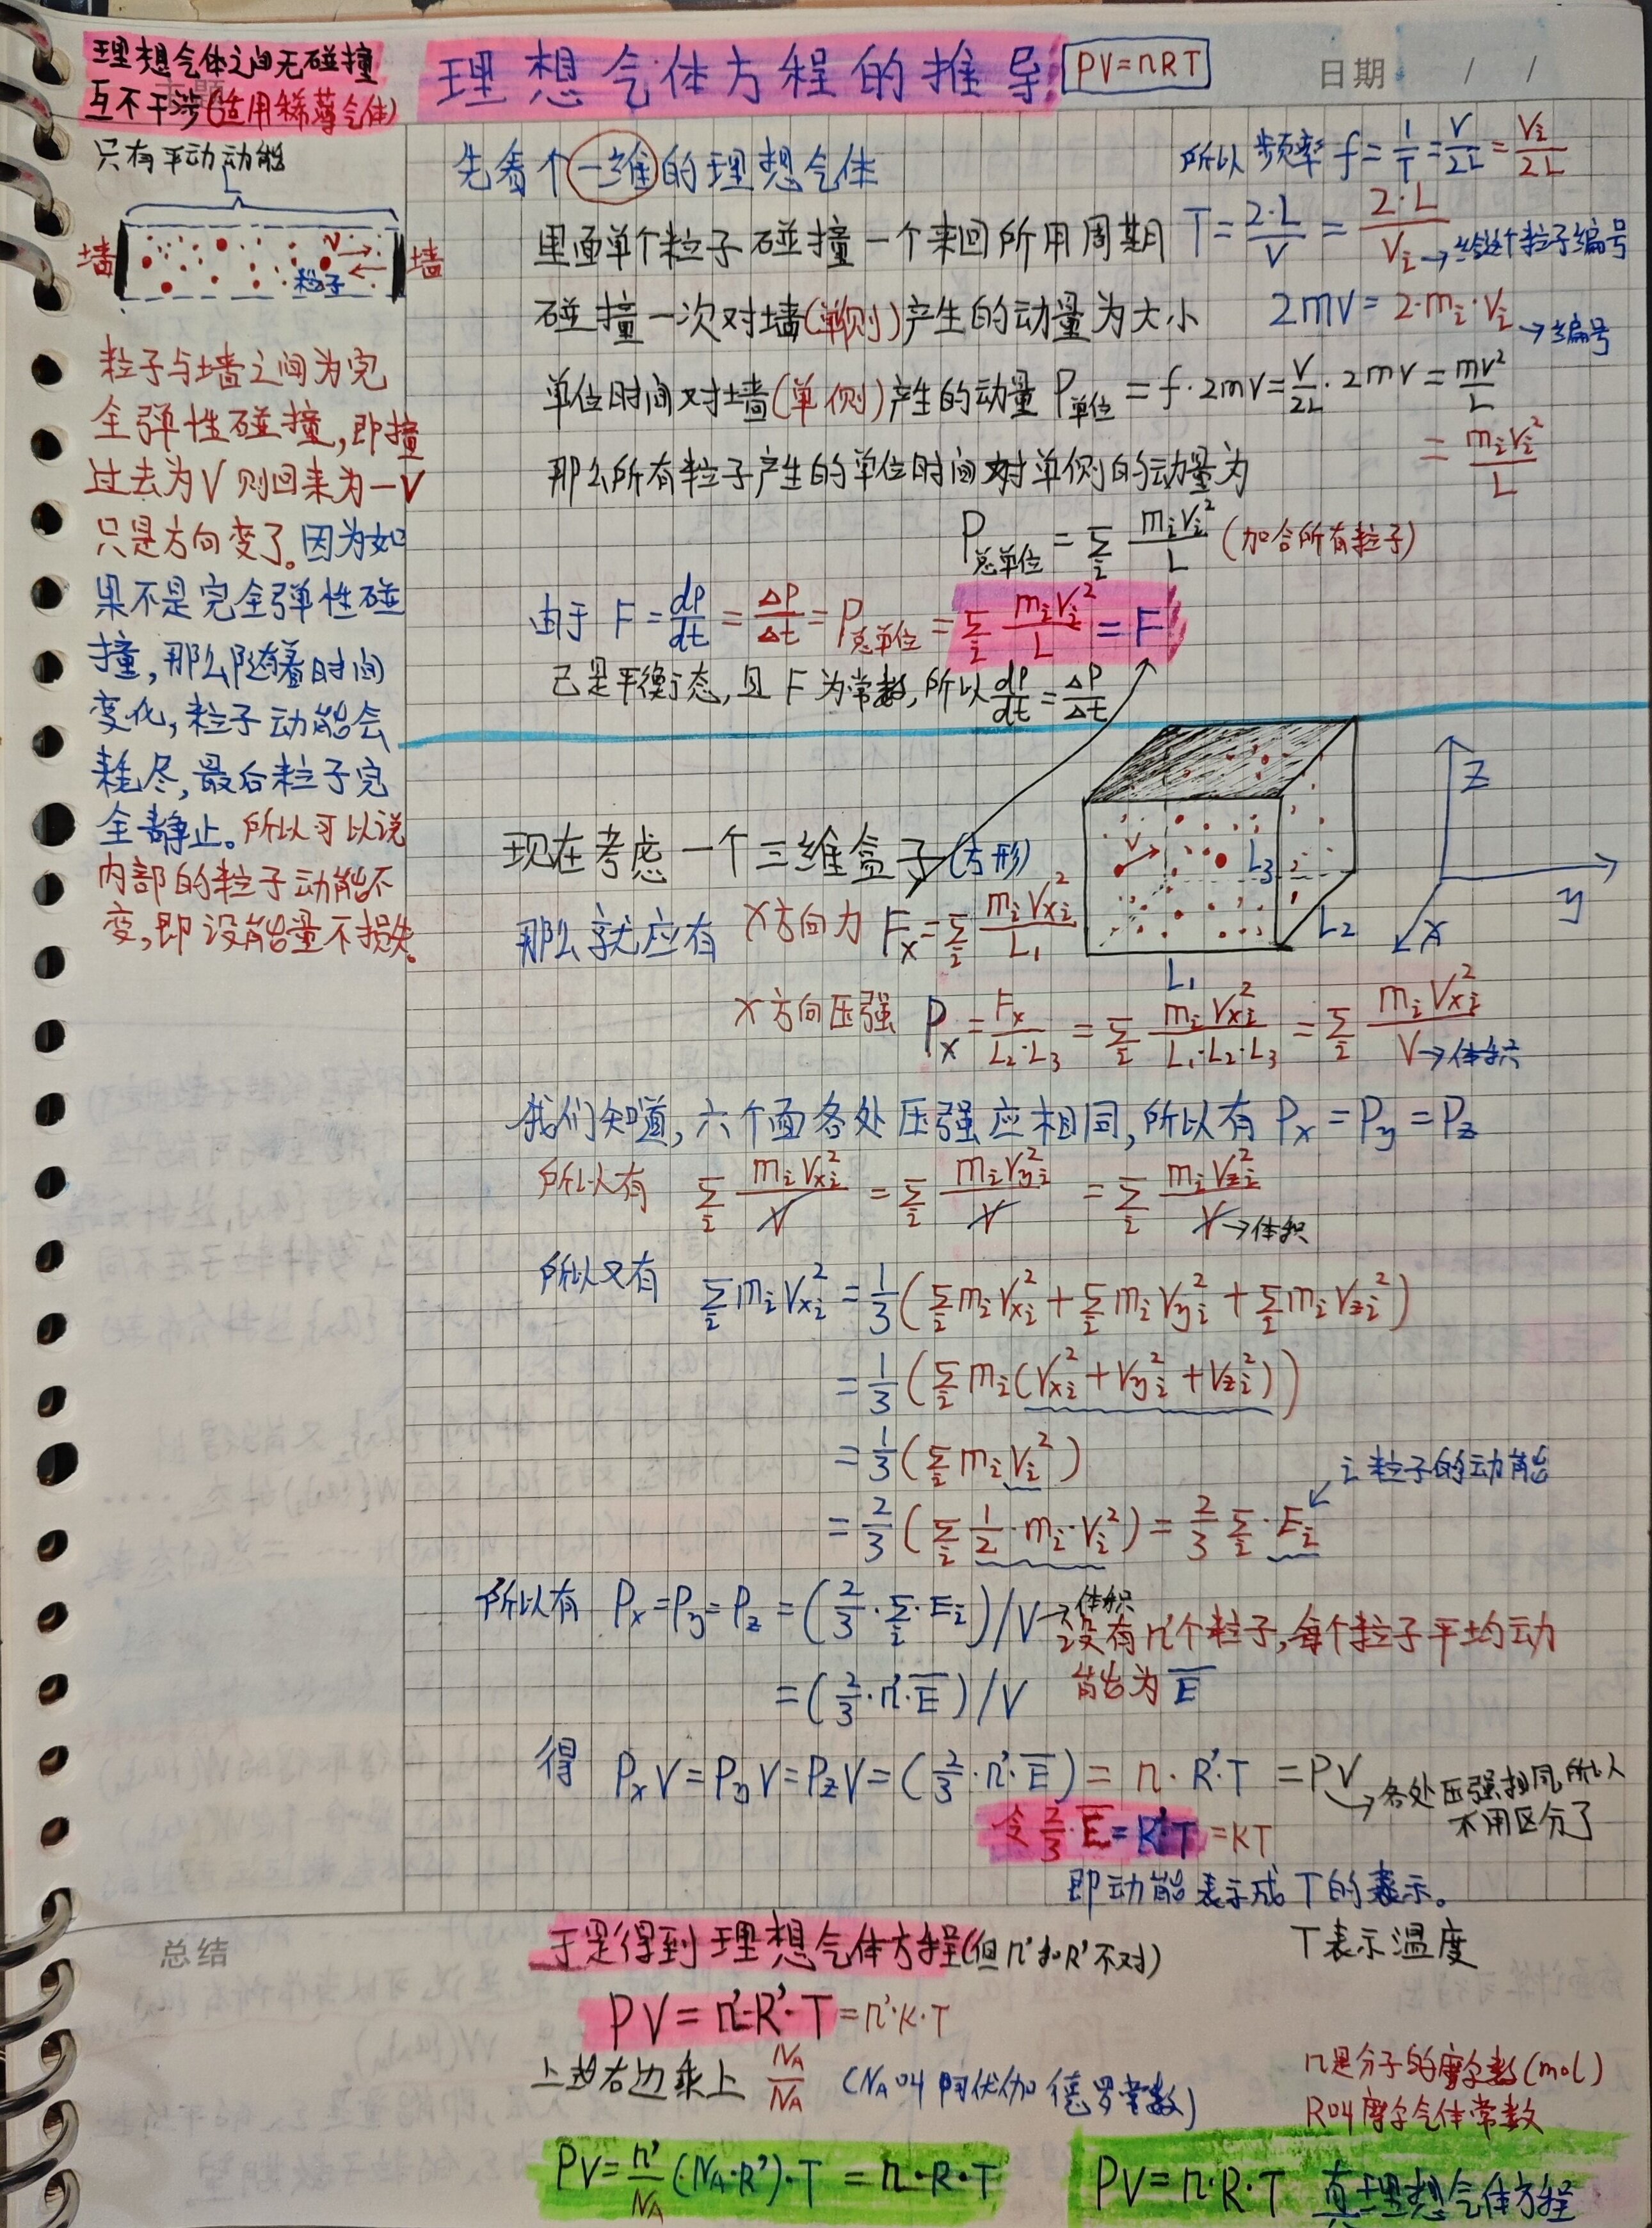 理想气体之间无碰撞
互不干涉(适用稀薄气体)
理想气体方程的推导 PV=nRT
日期 / /
只有平动动能
L
墙
v
粒子
墙
粒子与墙之间为完
全弹性碰撞,即撞
过去为V则回来为-V
只是方向变了。因为如
果不是完全弹性碰
撞,那么随着时间
变化,粒子动能会
耗尽,最后粒子完
全静止。所以可以说
内部的粒子动能不
变,即设能量不损失。
先看个一维的理想气体
所以频率 f=1/T=V/2L=Vi/2L
里面单个粒子碰撞一个来回所用周期 T=2·L/V=2·L/Vi→给这个粒子编号
碰撞一次对墙(单侧)产生的动量为大小 2mV=2·mi·Vi→编号
单位时间对墙(单侧)产生的动量 P单位=f·2mV=V/2L·2mV=mV²/L
=miVi²/L
那么所有粒子产生的单位时间对单侧的动量为
P总单位=Σi miVi²/L (加合所有粒子)
由于 F=dP/dt=ΔP/Δt=P总单位=Σi miVi²/L=F
已是平衡态,且F为常数,所以dP/dt=ΔP/Δt
现在考虑一个三维盒子(方形)
V
L3
L2
L1
Z
y
X
那么就应有 X方向力 Fx=Σi miVxi²/L1
X方向压强 Px=Fx/L2·L3=Σi miVxi²/L1·L2·L3=Σi miVxi²/V→体积
我们知道,六个面各处压强应相同,所以有 Px=Py=Pz
所以有 Σi miVxi²/V=Σi miVyi²/V=Σi miVzi²/V→体积
所以又有 Σi miVxi²=1/3(Σi miVxi²+Σi miVyi²+Σi miVzi²)
=1/3(Σi mi(Vxi²+Vyi²+Vzi²))
=1/3(Σi miVi²)
i粒子的动能
=2/3(Σi 1/2·mi·Vi²)=2/3 Σi·Ei
所以有 Px=Py=Pz=(2/3·Σi·Ei)/V→体积
设有n'个粒子,每个粒子平均动
能为E̅
=(2/3·n'·E̅)/V
得 PxV=PyV=PzV=(2/3·n'·E̅)=n·R'·T=PV
各处压强相同,所以
不用区分了
令2/3·E̅=R'·T=KT
即动能表示成T的表示。
总结
于是得到理想气体方程(但n'和R'不对)
T表示温度
PV=n'·R'·T=n'·K·T
上边右边乘上 NA/NA (NA叫阿伏伽德罗常数)
n是分子的摩尔数(mol)
R叫摩尔气体常数
PV=n'/NA(·NA·R')·T=n·R·T
PV=n·R·T 真·理想气体方程